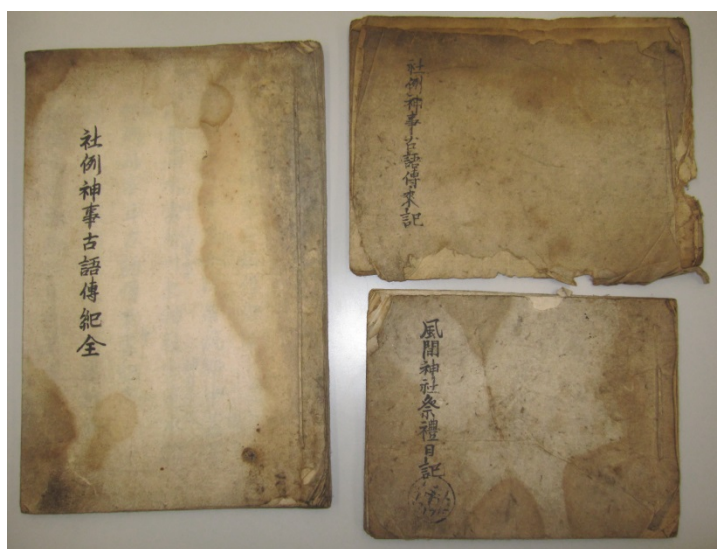 社例神事古語傳紀全
社例神事古語傳来記
風間神社祭禮日記